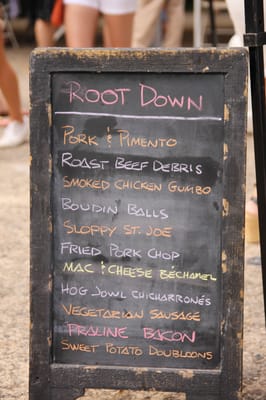 Root Down
Pork & Pimento
Roast Beef Debris
Smoked Chicken Gumbo
Boudin Balls
Sloppy St. Joe
Fried Pork Chop
Mac & Cheese Béchamel
Hog Jowl Chicharrones
Vegetarian Sausage
Praline Bakon
Sweet Potato Doubloons